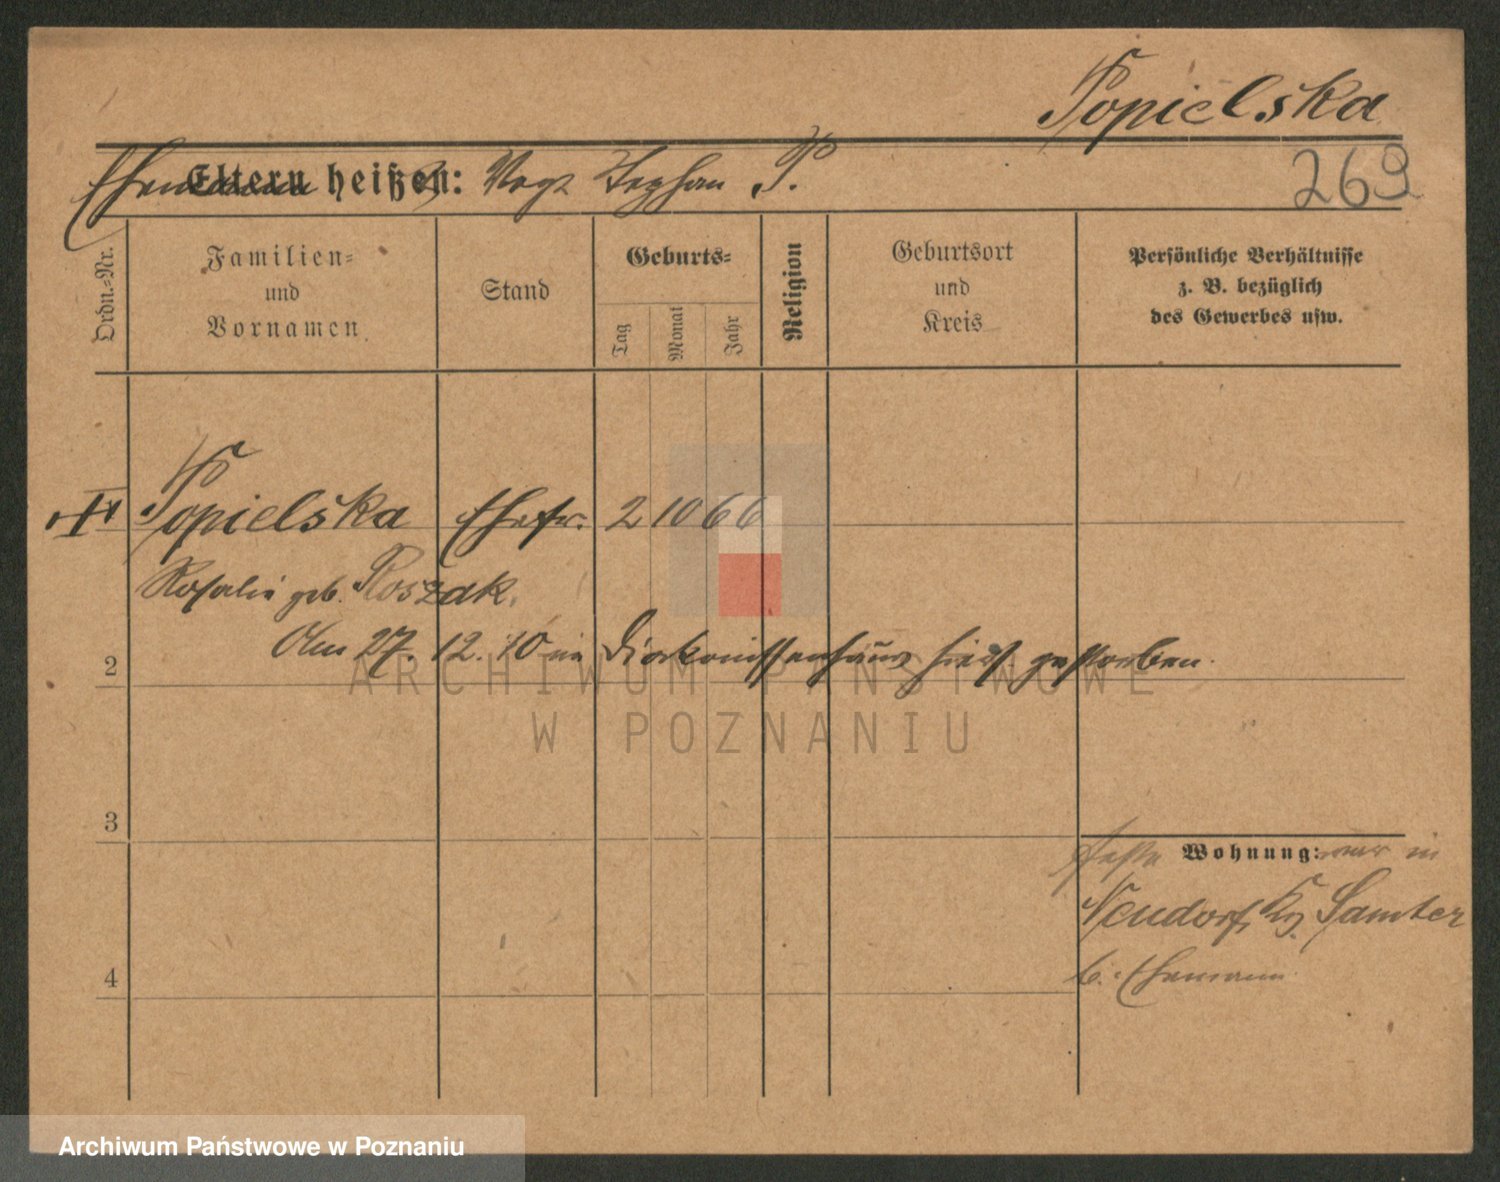 Topielska
Ehemann Eltern heißen: Vogt Stephan T.
269
Ordn.-Nr.
Familien-
und
Vornamen
Stand
Geburts-
Tag
Monat
Jahr
Religion
Geburtsort
und
Kreis
Persönliche Verhältnisse
z. B. bezüglich
des Gewerbes usw.
Topielska Ehefr. 2 10 66
Rosalie geb. Roszak.
Am 27. 12. 10 im Diakonissenhaus hies. gestorben.
2
3
4
Wohnung: war in
Neudorf, Kr. Samter
b. Ehemann
ARCHIWUM PAŃSTWOWE
W POZNANIU
Archiwum Państwowe w Poznaniu